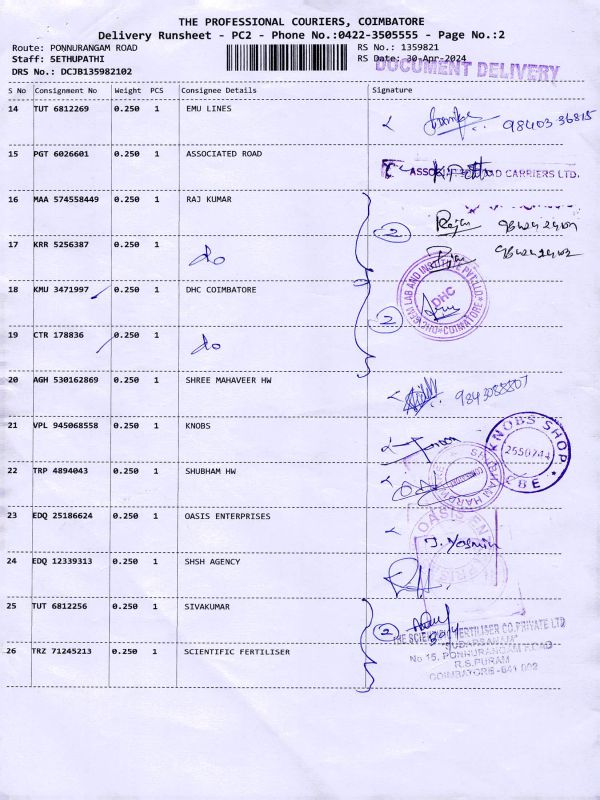 THE PROFESSIONAL COURIERS, COIMBATORE
Delivery Runsheet - PC2 - Phone No.:0422-3505555 - Page No.:2
Route: PONNURANGAM ROAD
RS No.: 1359821
Staff: SETHUPATHI
RS Date: 30-Apr-2024
DRS No.: DCJB135982102
DOCUMENT DELIVERY
S No Consignment No Weight PCS Consignee Details Signature
14 TUT 6812269 0.250 1 EMU LINES 98403 36815
15 PGT 6026601 0.250 1 ASSOCIATED ROAD
ROAD CARRIERS LTD.
16 MAA 574558449 0.250 1 RAJ KUMAR 2
17 KRR 5256387 0.250 1 do
18 KMU 3471997 0.250 1 DHC COIMBATORE 2
DHC
COIMBATORE
19 CTR 178836 0.250 1 do
20 AGH 530162869 0.250 1 SHREE MAHAVEER HW
21 VPL 945068558 0.250 1 KNOBS
KNOBS SHOP
CBE
22 TRP 4894043 0.250 1 SHUBHAM HW
23 EDQ 25186624 0.250 1 OASIS ENTERPRISES
J. Yasmin
24 EDQ 12339313 0.250 1 SHSH AGENCY
25 TUT 6812256 0.250 1 SIVAKUMAR 2
THE SCIENTIFIC FERTILISER CO.PRIVATE LTD
"SUDARSANAM"
26 TRZ 71245213 0.250 1 SCIENTIFIC FERTILISER
No 15, PONNURANGAM ROAD
R.S.PURAM
COIMBATORE-641 002